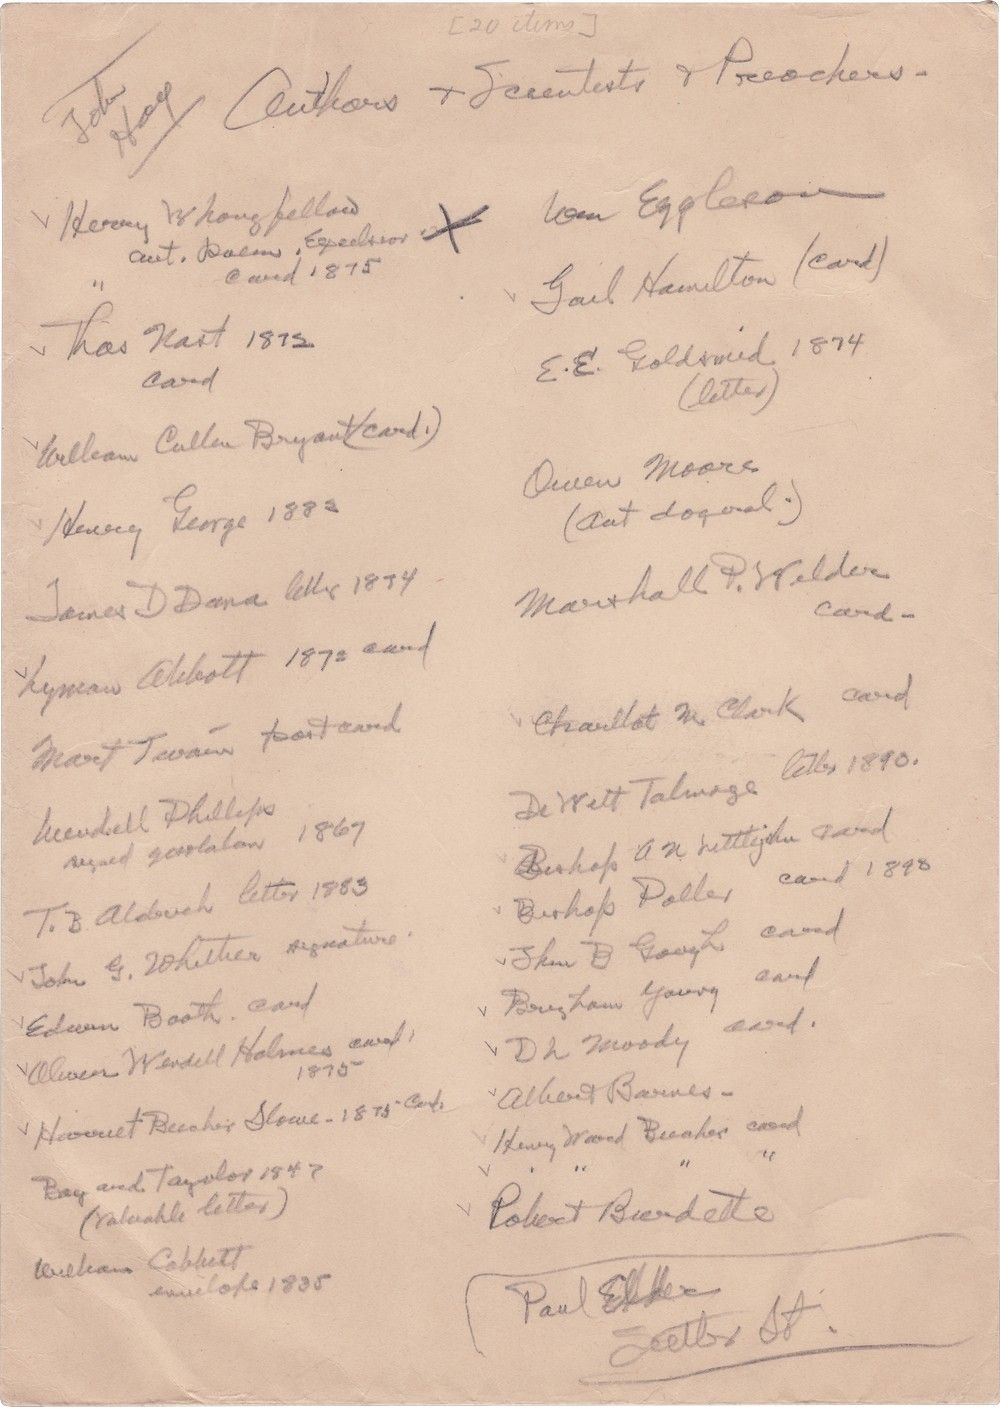 [20 items]
John Hay
Authors & Scientists & Preachers -
Henry W Longfellow
aut. Poem. Excelsior
" card 1875
Thos Nast 1872
card
William Cullen Bryant (card.)
Henry George 1883
James D Dana letter 1874
Lyman Abbott 1872 card
Mart Twain post card
Wendell Phillips
signed quotation 1867
T. B Aldrich letter 1883
John G. Whittier signature.
Edwin Booth. card
Oliver Wendell Holmes card.
1875
Harriet Beecher Stowe - 1875 Card.
Bay and Tayolor 1847
(valuable letter)
William Cobbett
envelope 1835
Wm Eggleson
Gail Hamilton (card)
E.E. Goldsmid 1874
(letter)
Owen Moore
(Aut)
Marshall P. Wilder
card -
Charllot M. Clark card
DeWitt Talmage letter 1890.
Bishop A N Littlejohn card
Bishop Potter card 1898
John B Gough card
Brigham Young card
D L Moody card.
Albert Barnes -
Henry Ward Beecher card
" " " "
Robert Burdette
Paul
St.